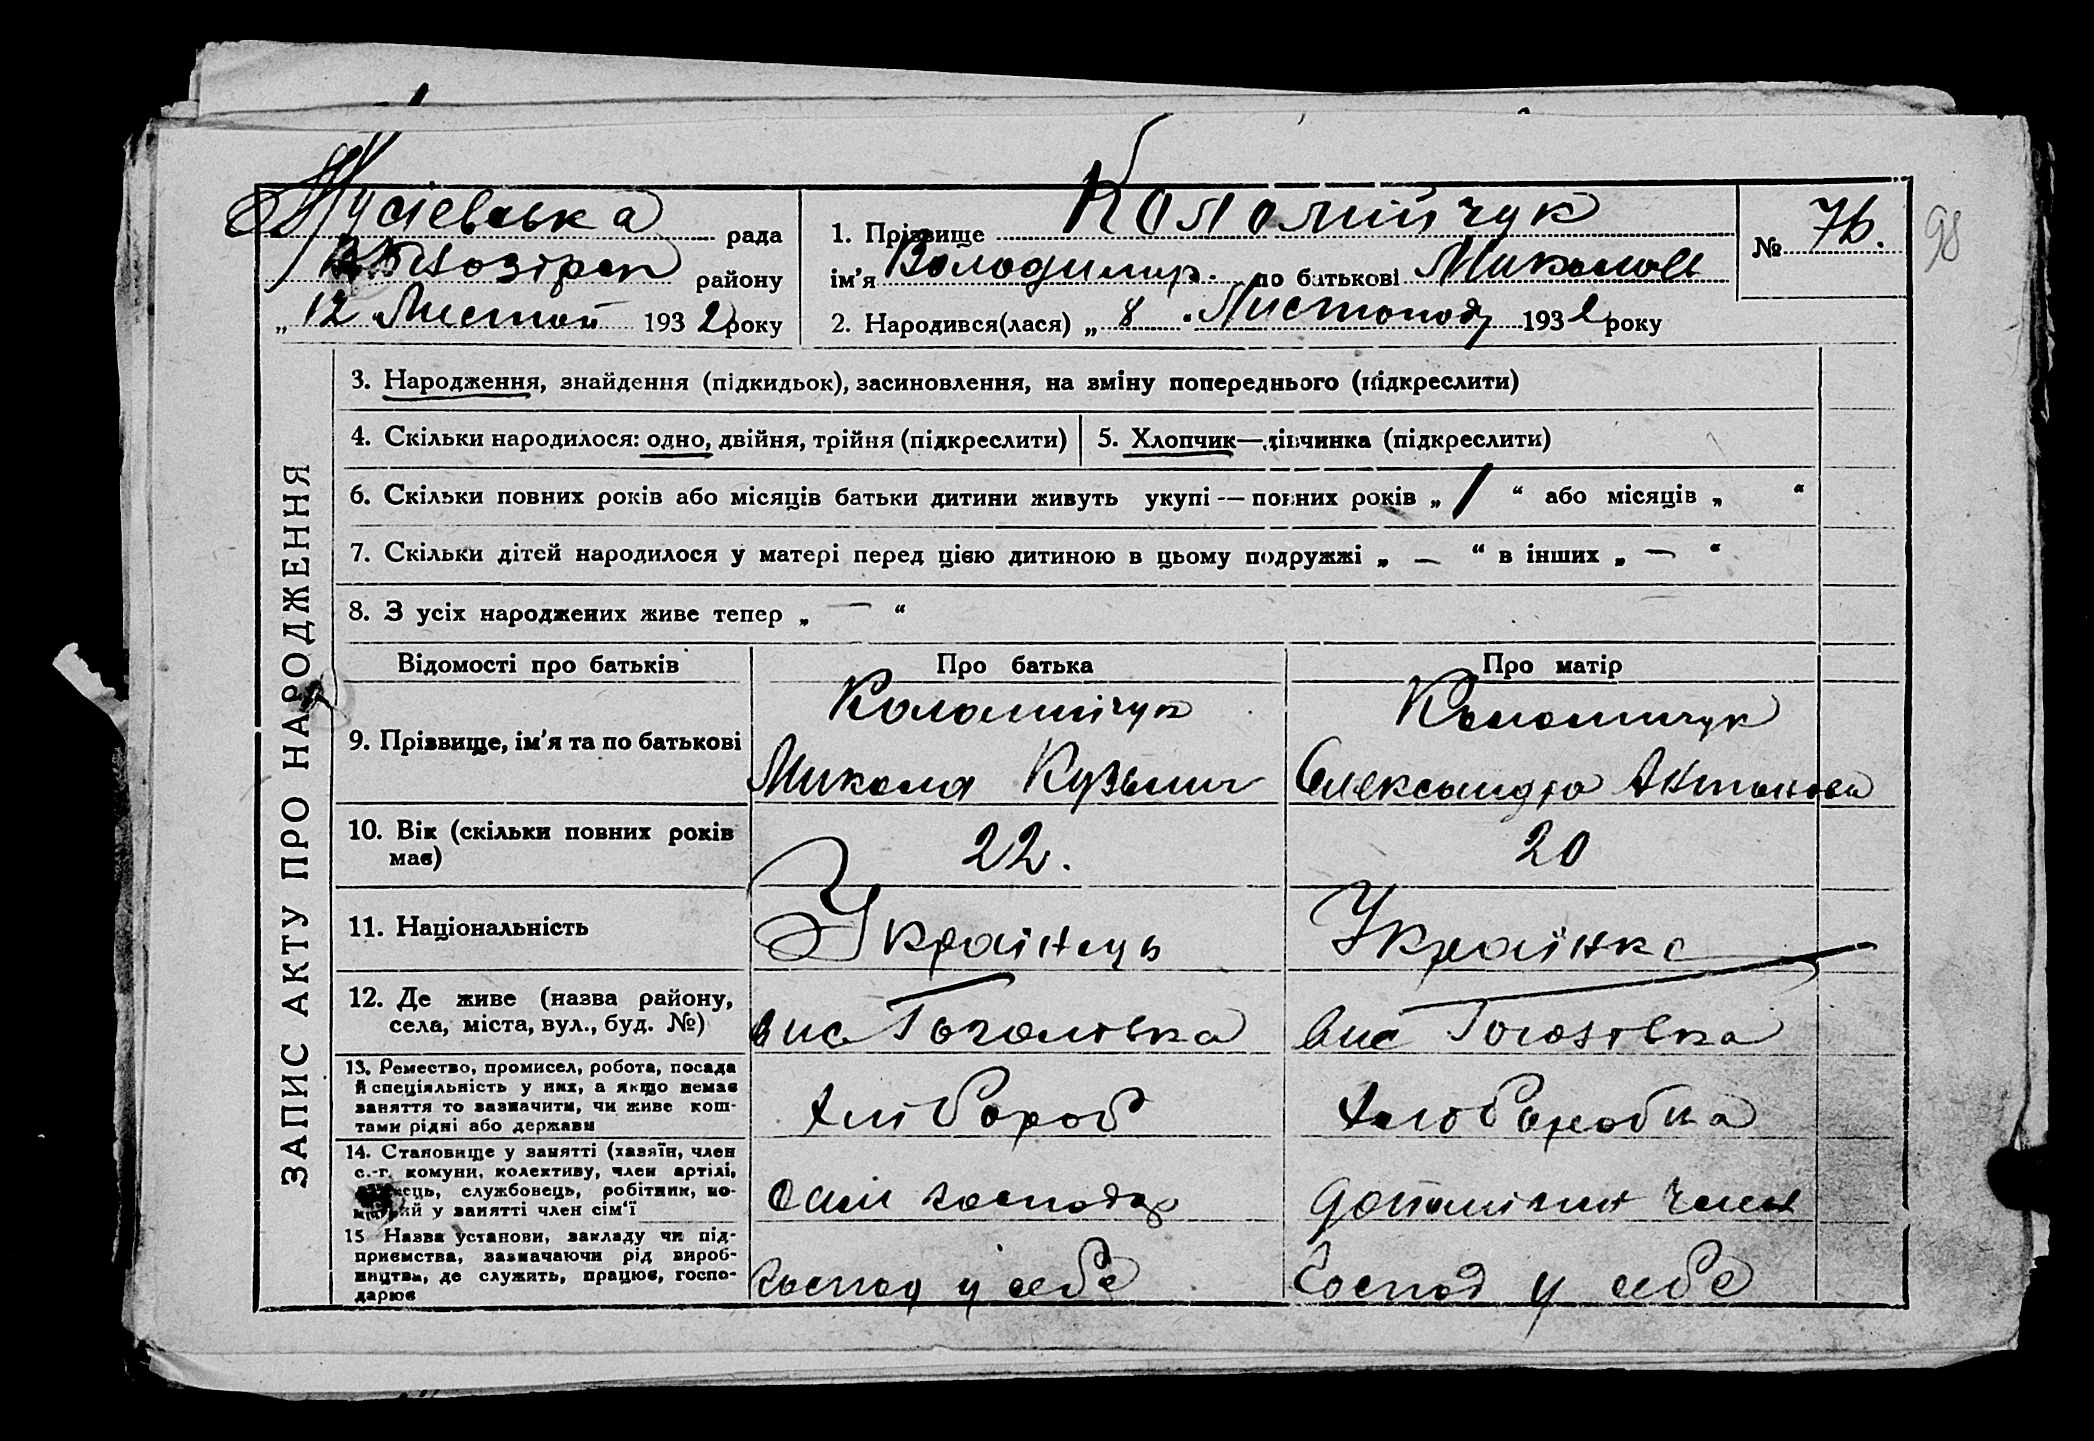 Мусіевська рада
Білозірсек району
„ 12 Листоп 1932 року
1. Прізвище Коломийчук
ім'я Володимир. по батькові Миколов
2. Народився(лася) „ 8 " Листопад 1932 року
№ 76.
98
ЗАПИС АКТУ ПРО НАРОДЖЕННЯ
3. Народження, знайдення (підкидьок), засиновлення, на зміну попереднього (підкреслити)
4. Скільки народилося: одно, двійня, трійня (підкреслити)
5. Хлопчик—дівчинка (підкреслити)
6. Скільки повних років або місяців батьки дитини живуть укупі — повних років „ 1 “ або місяців „ “
7. Скільки дітей народилося у матері перед цією дитиною в цьому подружжі „ — “ в інших „ — “
8. З усіх народжених живе тепер „ — “
Відомості про батьків
Про батька
Про матір
9. Прізвище, ім'я та по батькові
Коломийчук
Микола Кузьмич
Коломичук
Олександра Антонова
10. Вік (скільки повних років
має)
22.
20
11. Національність
Українець
Українка
12. Де живе (назва району,
села, міста, вул., буд. №)
вис Гоголівка
вис Гоголівка
13. Ремество, промисел, робота, посада
й спеціяльність у них, а якщо немає
заняття то зазначити, чи живе кош-
тами рідні або держави
хлібороб
хліборобка
14. Становище у занятті (хазяїн, член
с.-г. комуни, колективу, член артілі,
службовець, робітник, по-
у занятті член сім'ї
сам господар
допоміжн член
15 Назва установи, закладу чи під-
приємства, зазначаючи рід вироб-
ництва, де служить, працює, госпо-
дарює
Господ у себе
Господ у себе